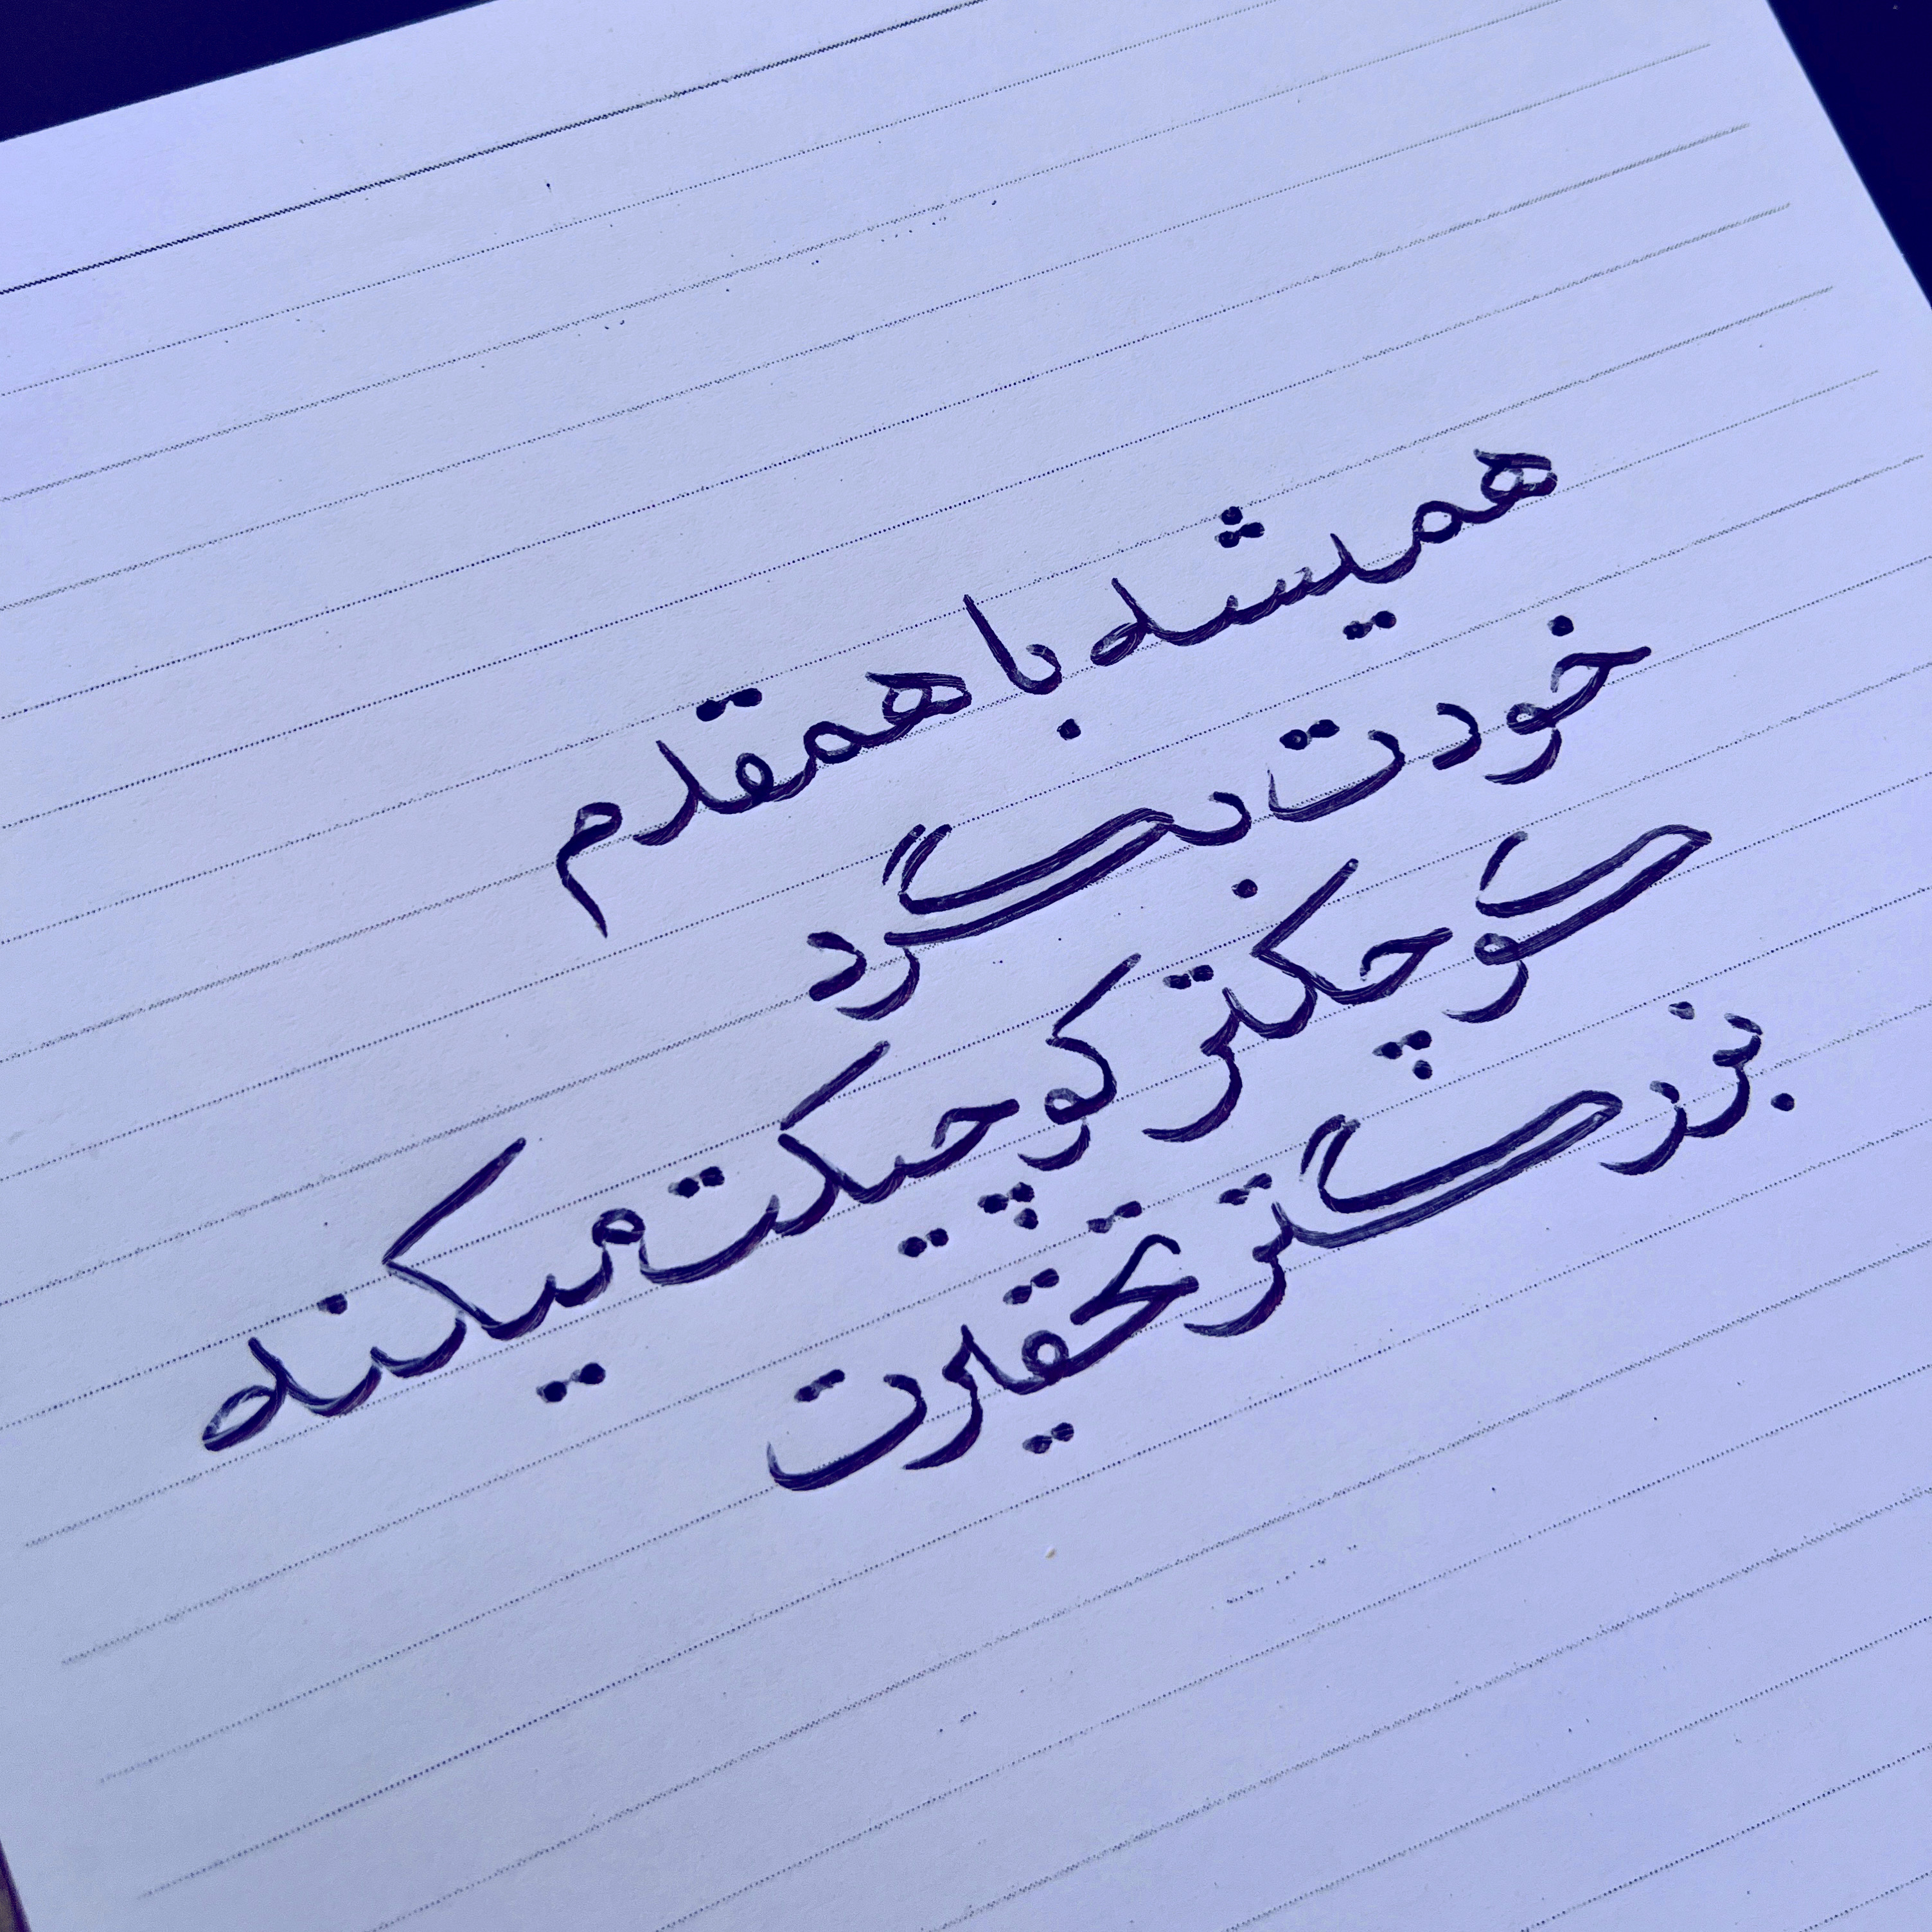 همیشه با همقدم
خودت بگرد
کوچکتر کوچیکت میکنه
بزرگتر تحقیرت